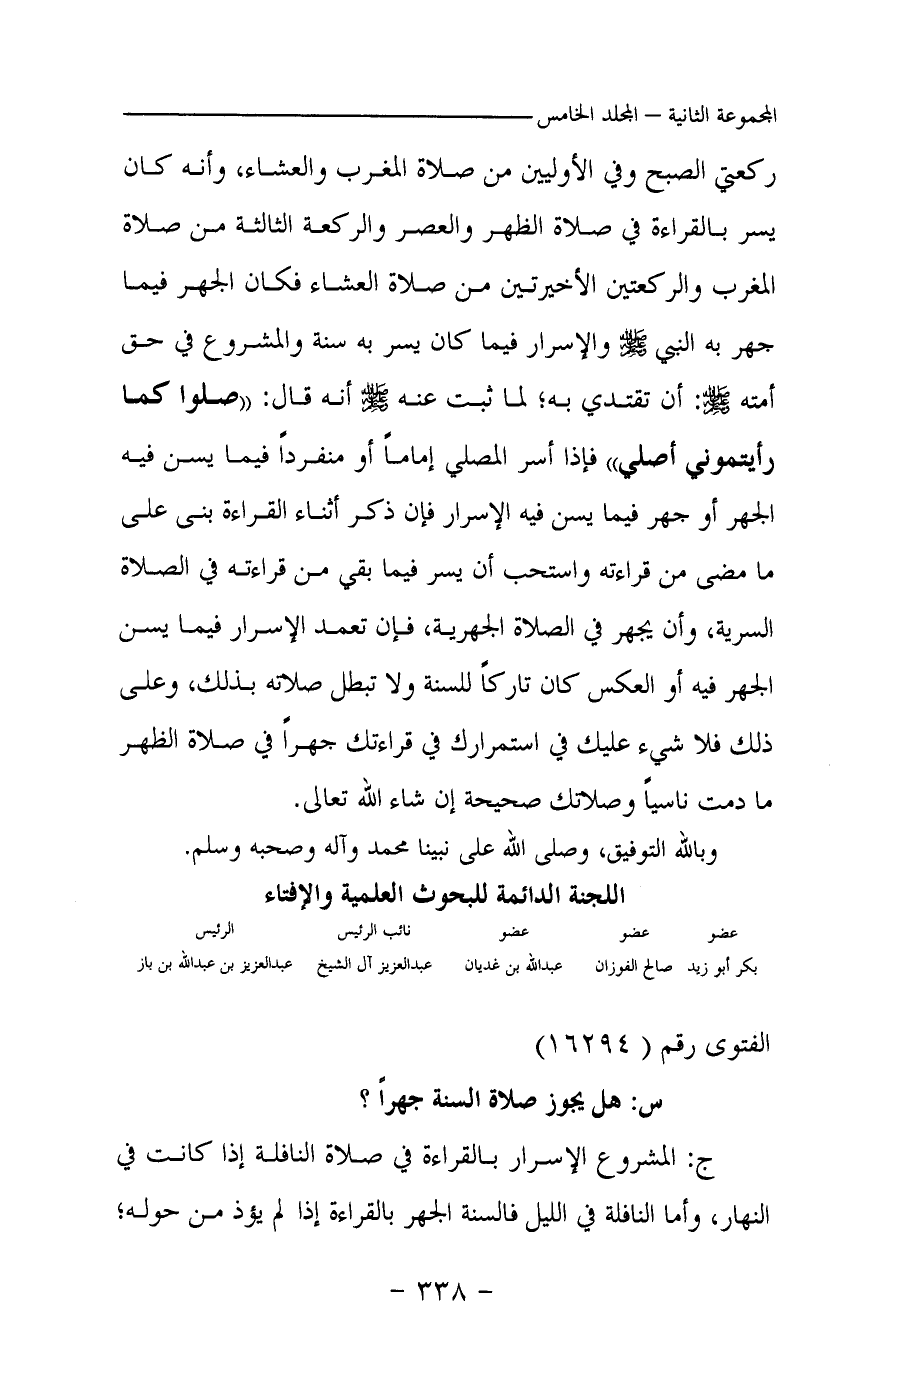 المجموعة الثانية – المجلد الخامس
ركعتي الصبح وفي الأوليين من صلاة المغرب والعشاء، وأنه كان
يسر بالقراءة في صلاة الظهر والعصر والركعة الثالثة من صلاة
المغرب والركعتين الأخيرتين من صلاة العشاء فكان الجهر فيما
جهر به النبي ﷺ والإسرار فيما كان يسر به سنة والمشروع في حق
أمته ﷺ: أن تقتدي به؛ لما ثبت عنه ﷺ أنه قال: ((صلوا كما
رأيتموني أصلي)) فإذا أسر المصلي إماماً أو منفرداً فيما يسن فيه
الجهر أو جهر فيما يسن فيه الإسرار فإن ذكر أثناء القراءة بنى على
ما مضى من قراءته واستحب أن يسر فيما بقي من قراءته في الصلاة
السرية، وأن يجهر في الصلاة الجهرية، فإن تعمد الإسرار فيما يسن
الجهر فيه أو العكس كان تاركاً للسنة ولا تبطل صلاته بذلك، وعلى
ذلك فلا شيء عليك في استمرارك في قراءتك جهراً في صلاة الظهر
ما دمت ناسياً وصلاتك صحيحة إن شاء الله تعالى.
وبالله التوفيق، وصلى الله على نبينا محمد وآله وصحبه وسلم.
اللجنة الدائمة للبحوث العلمية والإفتاء
عضو عضو عضو نائب الرئيس الرئيس
بكر أبو زيد صالح الفوزان عبدالله بن غديان عبدالعزيز آل الشيخ عبدالعزيز بن عبدالله بن باز
الفتوى رقم ( ١٦٢٩٤)
س: هل يجوز صلاة السنة جهراً ؟
ج: المشروع الإسرار بالقراءة في صلاة النافلة إذا كانت في
النهار، وأما النافلة في الليل فالسنة الجهر بالقراءة إذا لم يؤذ من حوله؛
- ٣٣٨ -